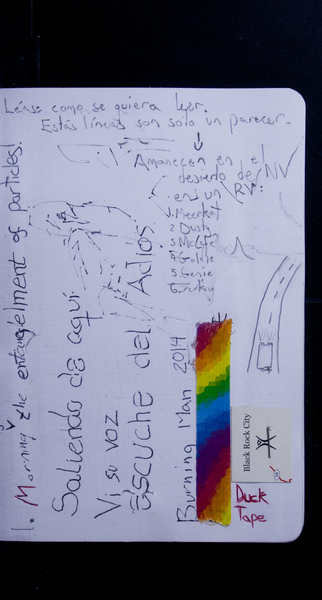 Léase como se quiera leer.
Estás líneas son solo un parecer.
Amanecen en el
desierto de NV
en un RV:
1. Meerkat
2. Dusty
5. Genie
1. Morning the entanglement of particles!
Saliendo de aquí
Vi su voz
Escuche del Adiós
Burning Man 2014
Black Rock City
Duck
Tape